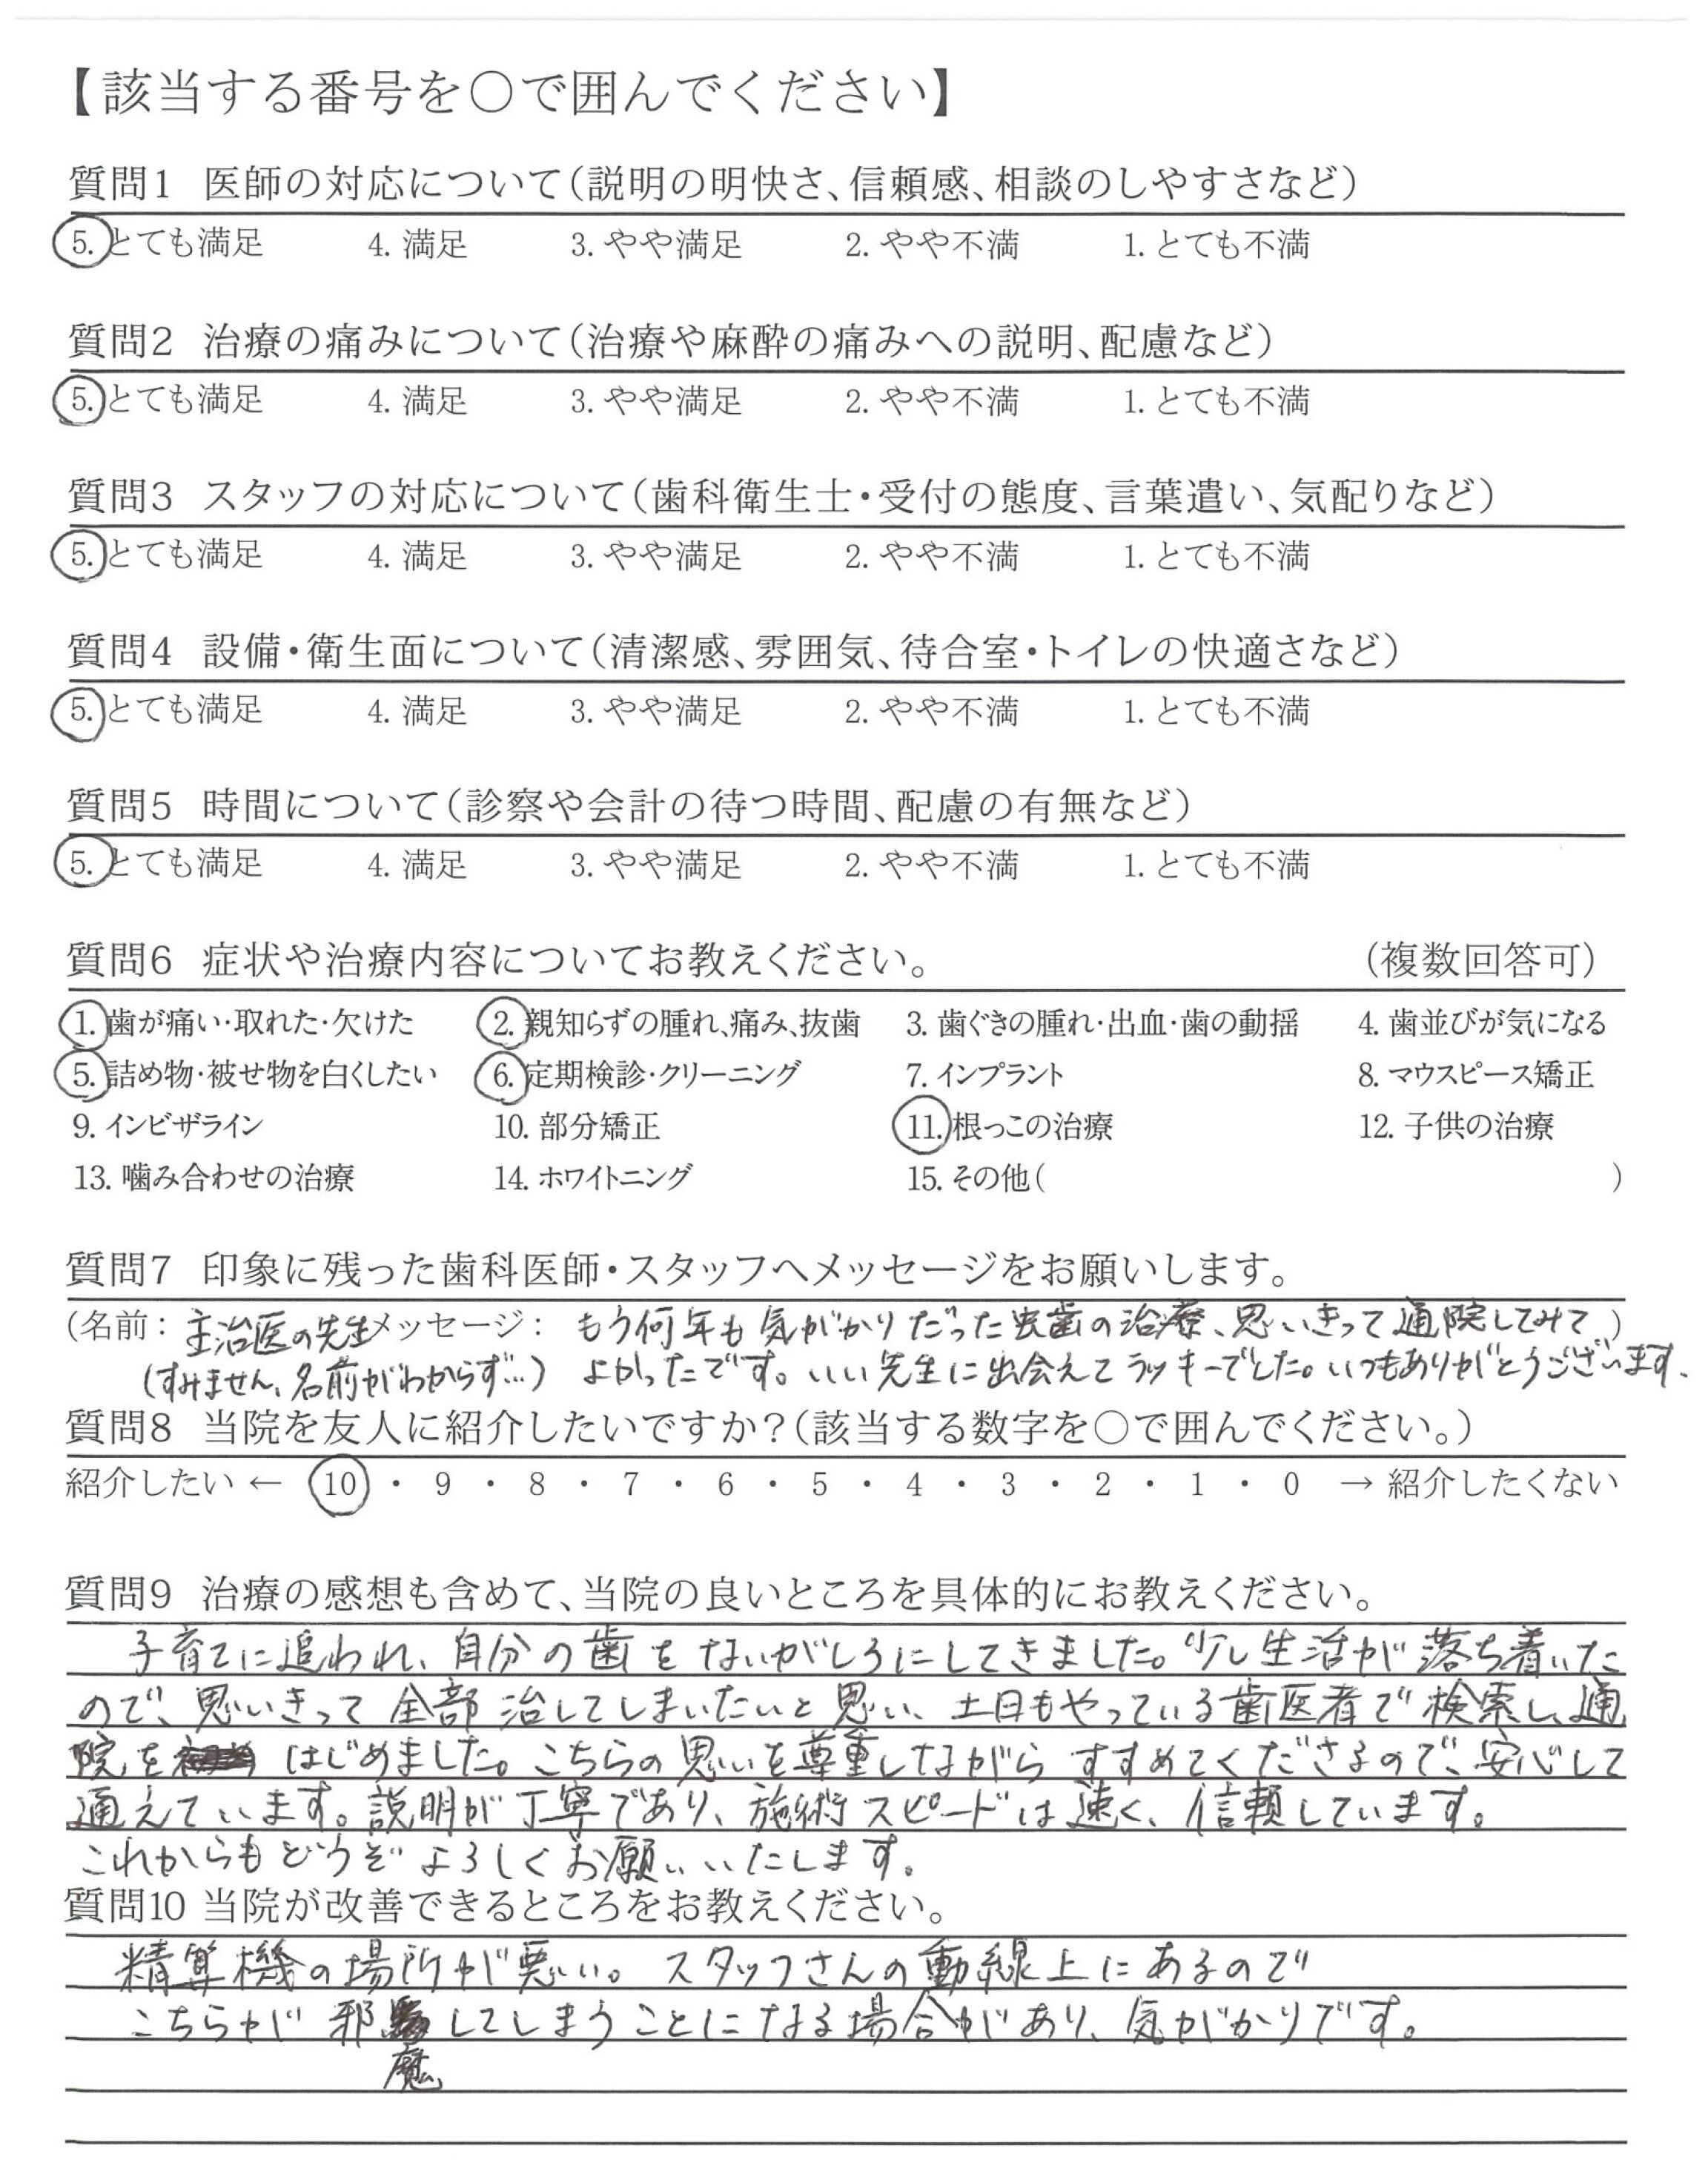 【該当する番号を○で囲んでください】
質問1 医師の対応について(説明の明快さ、信頼感、相談のしやすさなど)
5. とても満足 4. 満足 3. やや満足 2. やや不満 1. とても不満
質問2 治療の痛みについて(治療や麻酔の痛みへの説明、配慮など)
5. とても満足 4. 満足 3. やや満足 2. やや不満 1. とても不満
質問3 スタッフの対応について(歯科衛生士・受付の態度、言葉遣い、気配りなど)
5. とても満足 4. 満足 3. やや満足 2. やや不満 1. とても不満
質問4 設備・衛生面について(清潔感、雰囲気、待合室・トイレの快適さなど)
5. とても満足 4. 満足 3. やや満足 2. やや不満 1. とても不満
質問5 時間について(診察や会計の待つ時間、配慮の有無など)
5. とても満足 4. 満足 3. やや満足 2. やや不満 1. とても不満
質問6 症状や治療内容についてお教えください。 (複数回答可)
1. 歯が痛い・取れた・欠けた 2. 親知らずの腫れ、痛み、抜歯 3. 歯ぐきの腫れ・出血・歯の動揺 4. 歯並びが気になる
5. 詰め物・被せ物を白くしたい 6. 定期検診・クリーニング 7. インプラント 8. マウスピース矯正
9. インビザライン 10. 部分矯正 11. 根っこの治療 12. 子供の治療
13. 噛み合わせの治療 14. ホワイトニング 15. その他( )
質問7 印象に残った歯科医師・スタッフへメッセージをお願いします。
(名前: 主治医の先生 メッセージ: もう何年も気がかりだった虫歯の治療、思いきって通院してみて )
(すみません、名前がわからず…) よかったです。いい先生に出会えてラッキーでした。いつもありがとうございます。
質問8 当院を友人に紹介したいですか?(該当する数字を○で囲んでください。)
紹介したい ← 10 ・ 9 ・ 8 ・ 7 ・ 6 ・ 5 ・ 4 ・ 3 ・ 2 ・ 1 ・ 0 → 紹介したくない
質問9 治療の感想も含めて、当院の良いところを具体的にお教えください。
子育てに追われ、自分の歯をないがしろにしてきました。少し生活が落ち着いた
ので、思いきって全部治してしまいたいと思い、土日もやっている歯医者で検索し、通
院を はじめました。こちらの思いを尊重しながらすすめてくださるので、安心して
通えています。説明が丁寧であり、施術スピードは速く、信頼しています。
これからもどうぞよろしくお願いいたします。
質問10 当院が改善できるところをお教えください。
精算機の場所が悪い。スタッフさんの動線上にあるので
こちらが邪魔してしまうことになる場合があり、気がかりです。